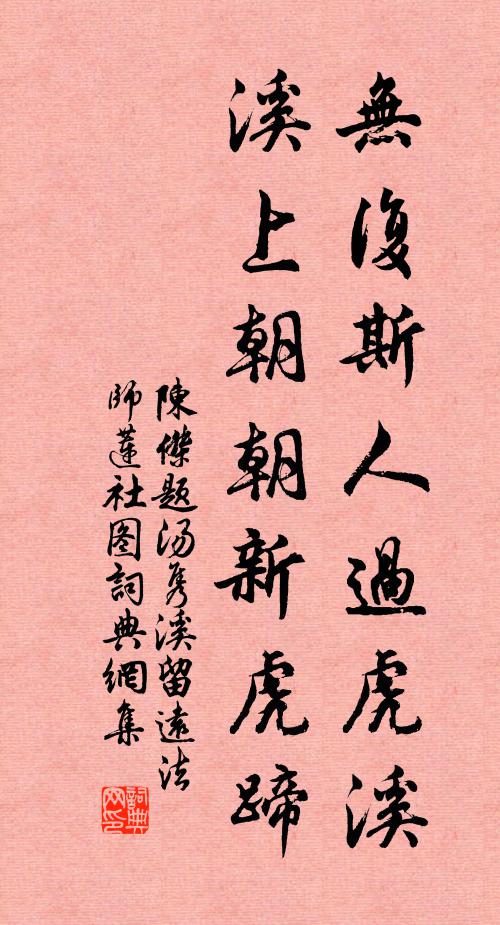 無復斯人過虎溪
溪上朝朝新虎蹄
陳傑題湯隽溪留遠法
師蓮社图詞典網集
詞典
网印